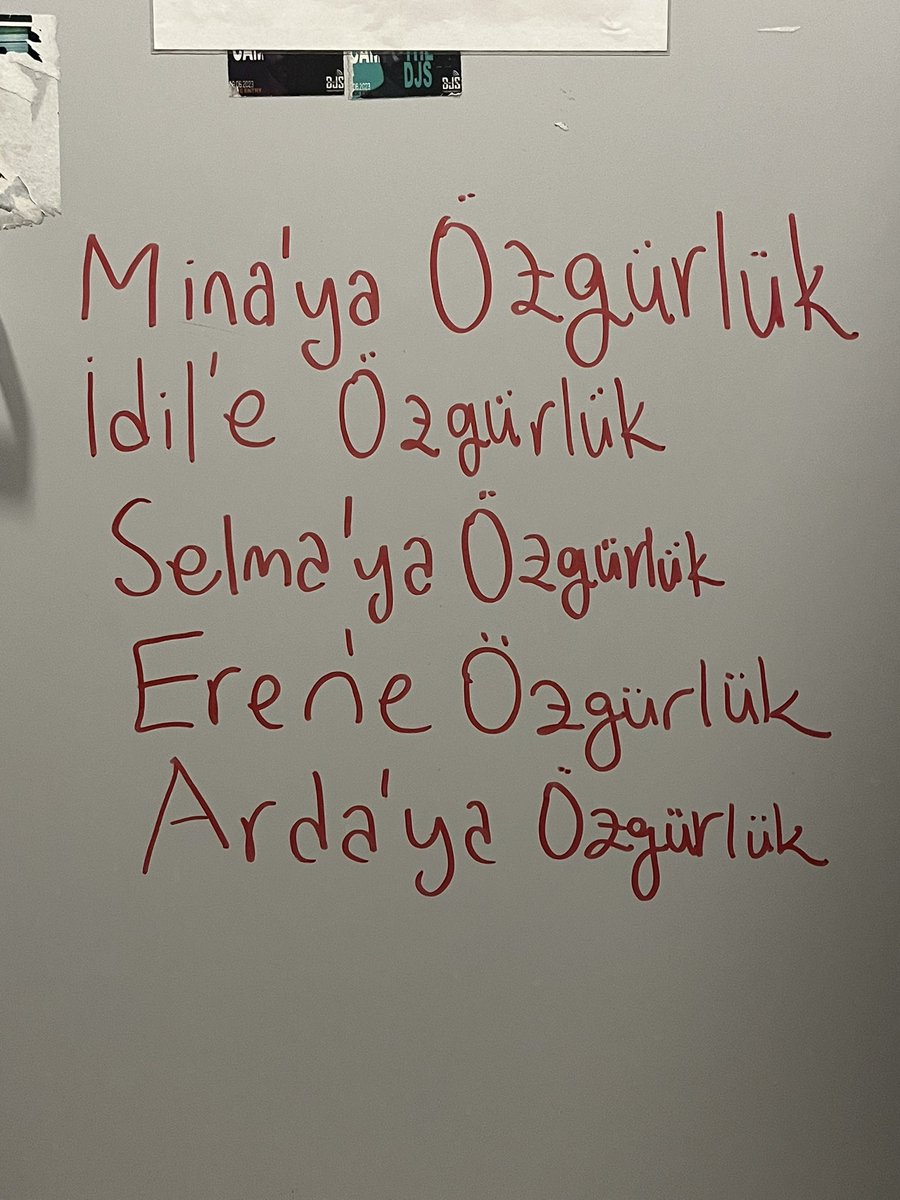 DJS
8JS
8JS
Mina'ya Özgürlük
İdil'e Özgürlük
Selma'ya Özgürlük
Eren'e Özgürlük
Arda'ya Özgürlük